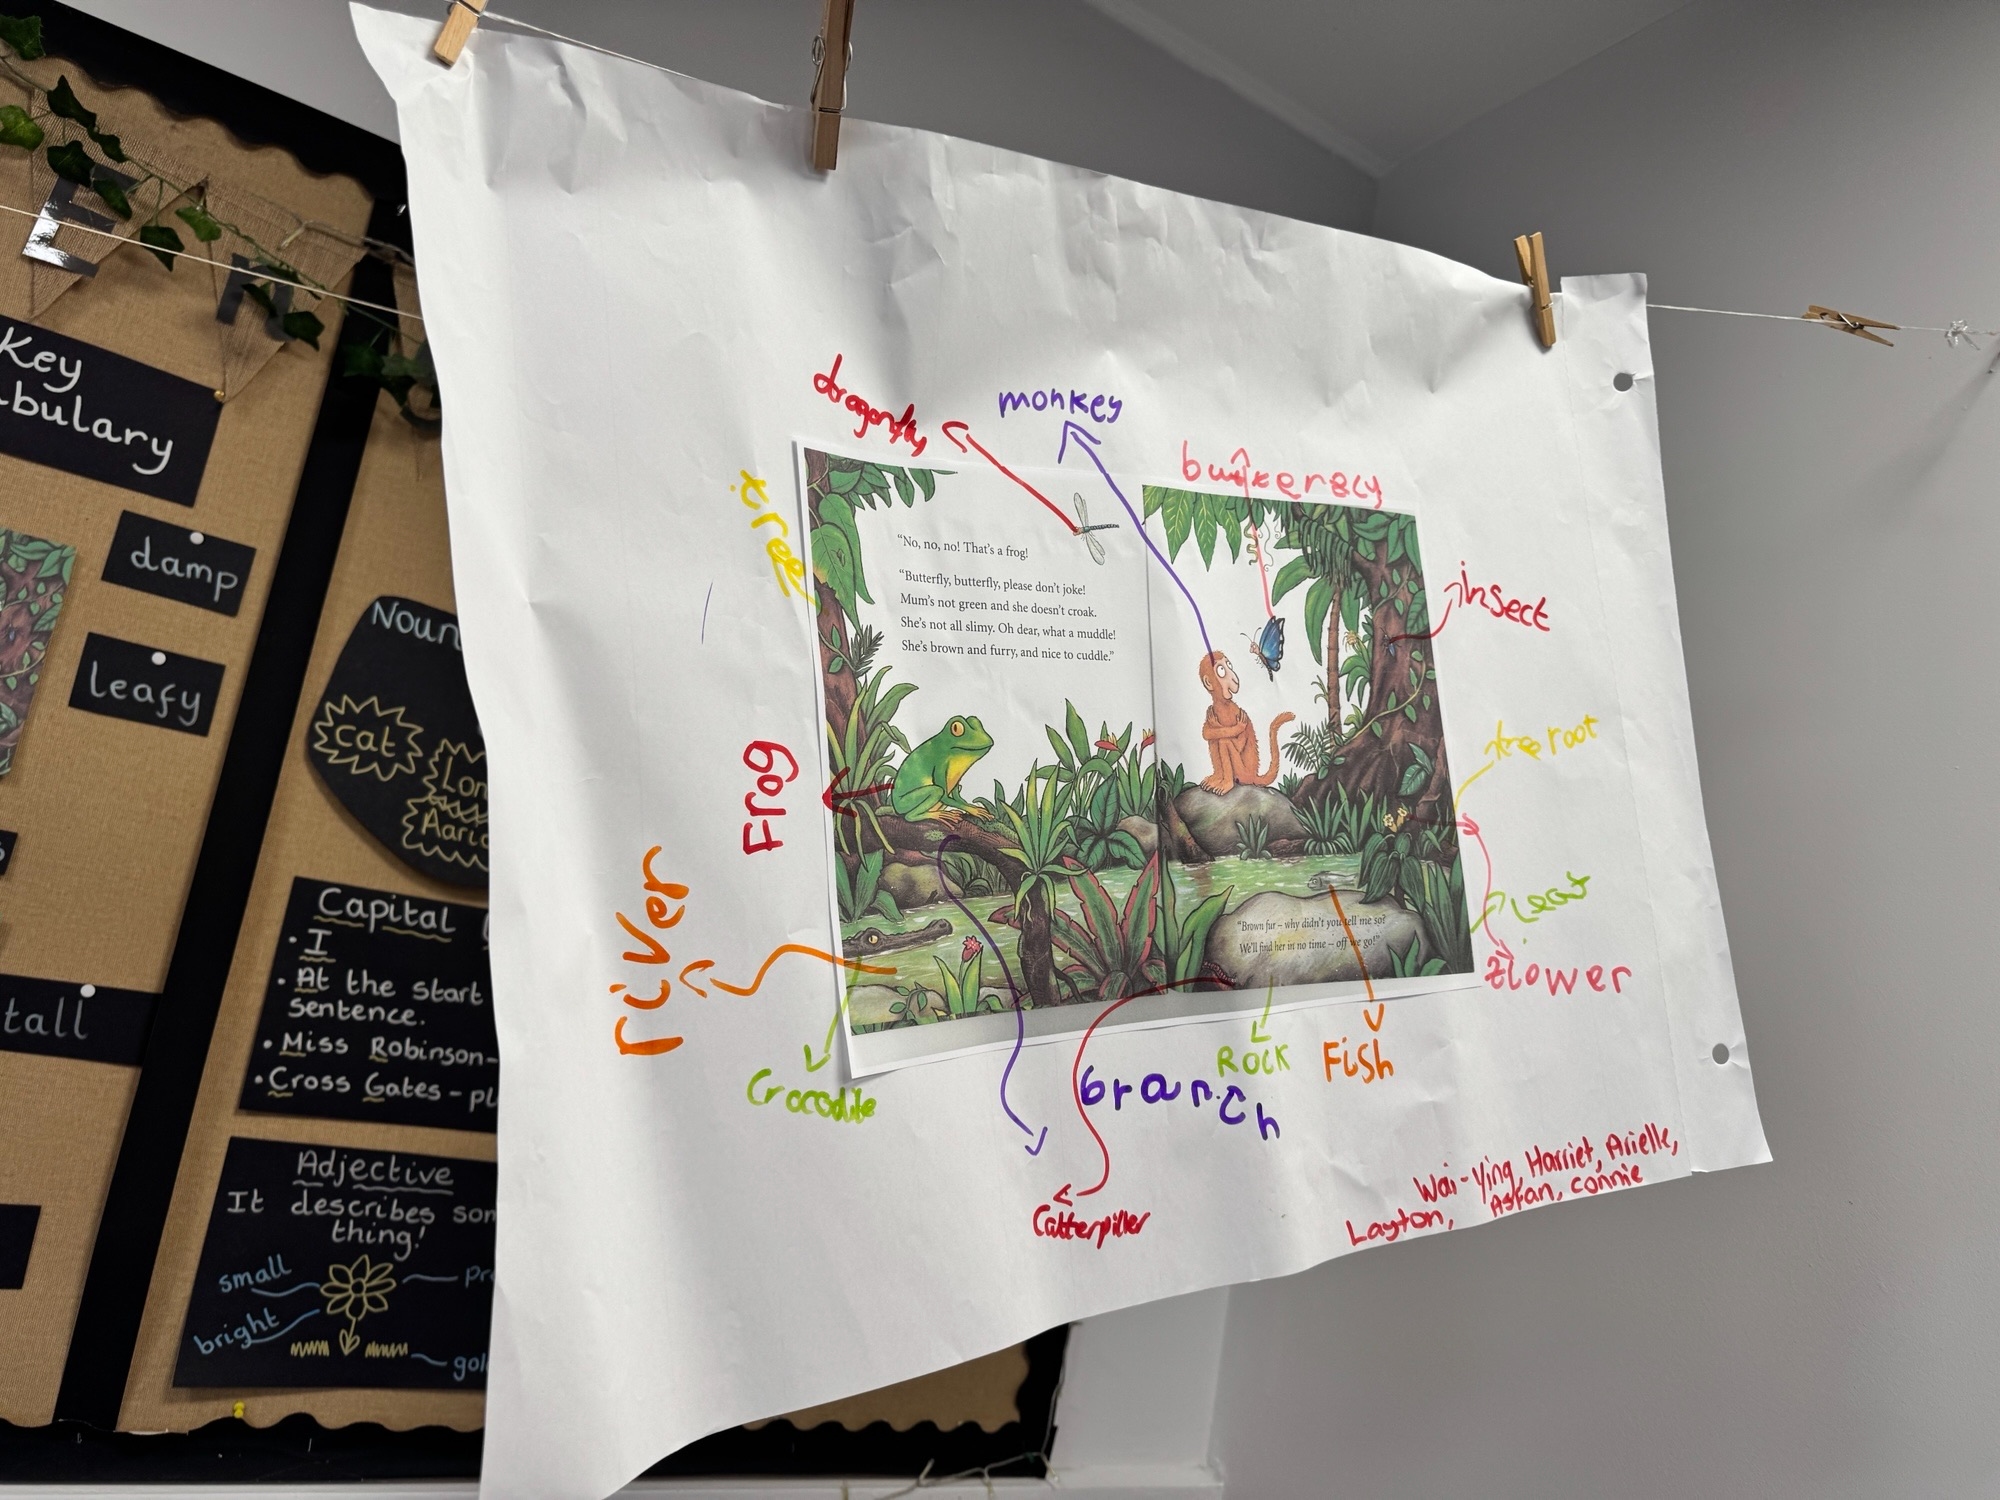 E
Key
bulary
damp
leafy
tall
Noun
Cat
Lon
Aaric
Capital
• I
• At the start
sentence.
• Miss Robinson-
• Cross Gates - pl
Adjective
It describes som
thing!
small
bright
pr
gol
dragonfly
monkey
tree
insect
tree root
Frog
river
Leaf
flower
Crocodile
branch
Rock
Fish
Catterpiller
"No, no, no! That's a frog!
"Butterfly, butterfly, please don't joke!
Mum's not green and she doesn't croak.
She's not all slimy. Oh dear, what a muddle!
She's brown and furry, and nice to cuddle."
"Brown fur – why didn't you tell me so?
We'll find her in no time – off we go!"
Wai-Ying, Harriet, Arielle,
Layton, Asfan, Connie